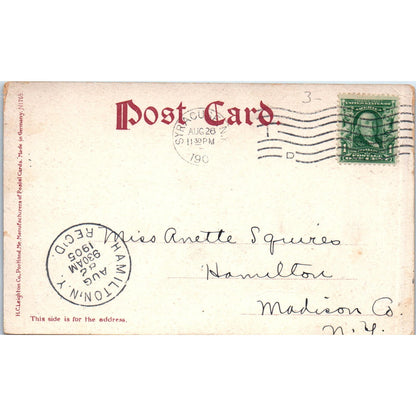 3-
Post Card.
SYRACUSE, N.Y.
AUG 26
11-30PM
190
D
H.C. Leighton Co., Portland, Me. Manufacturers of Postal Cards. Made in Germany.
HAMILTON, N.Y.
AUG
9:30AM
1905
REC'D.
Miss Anette Squires
Hamilton
Madison Co.
N.Y.
This side is for the address.